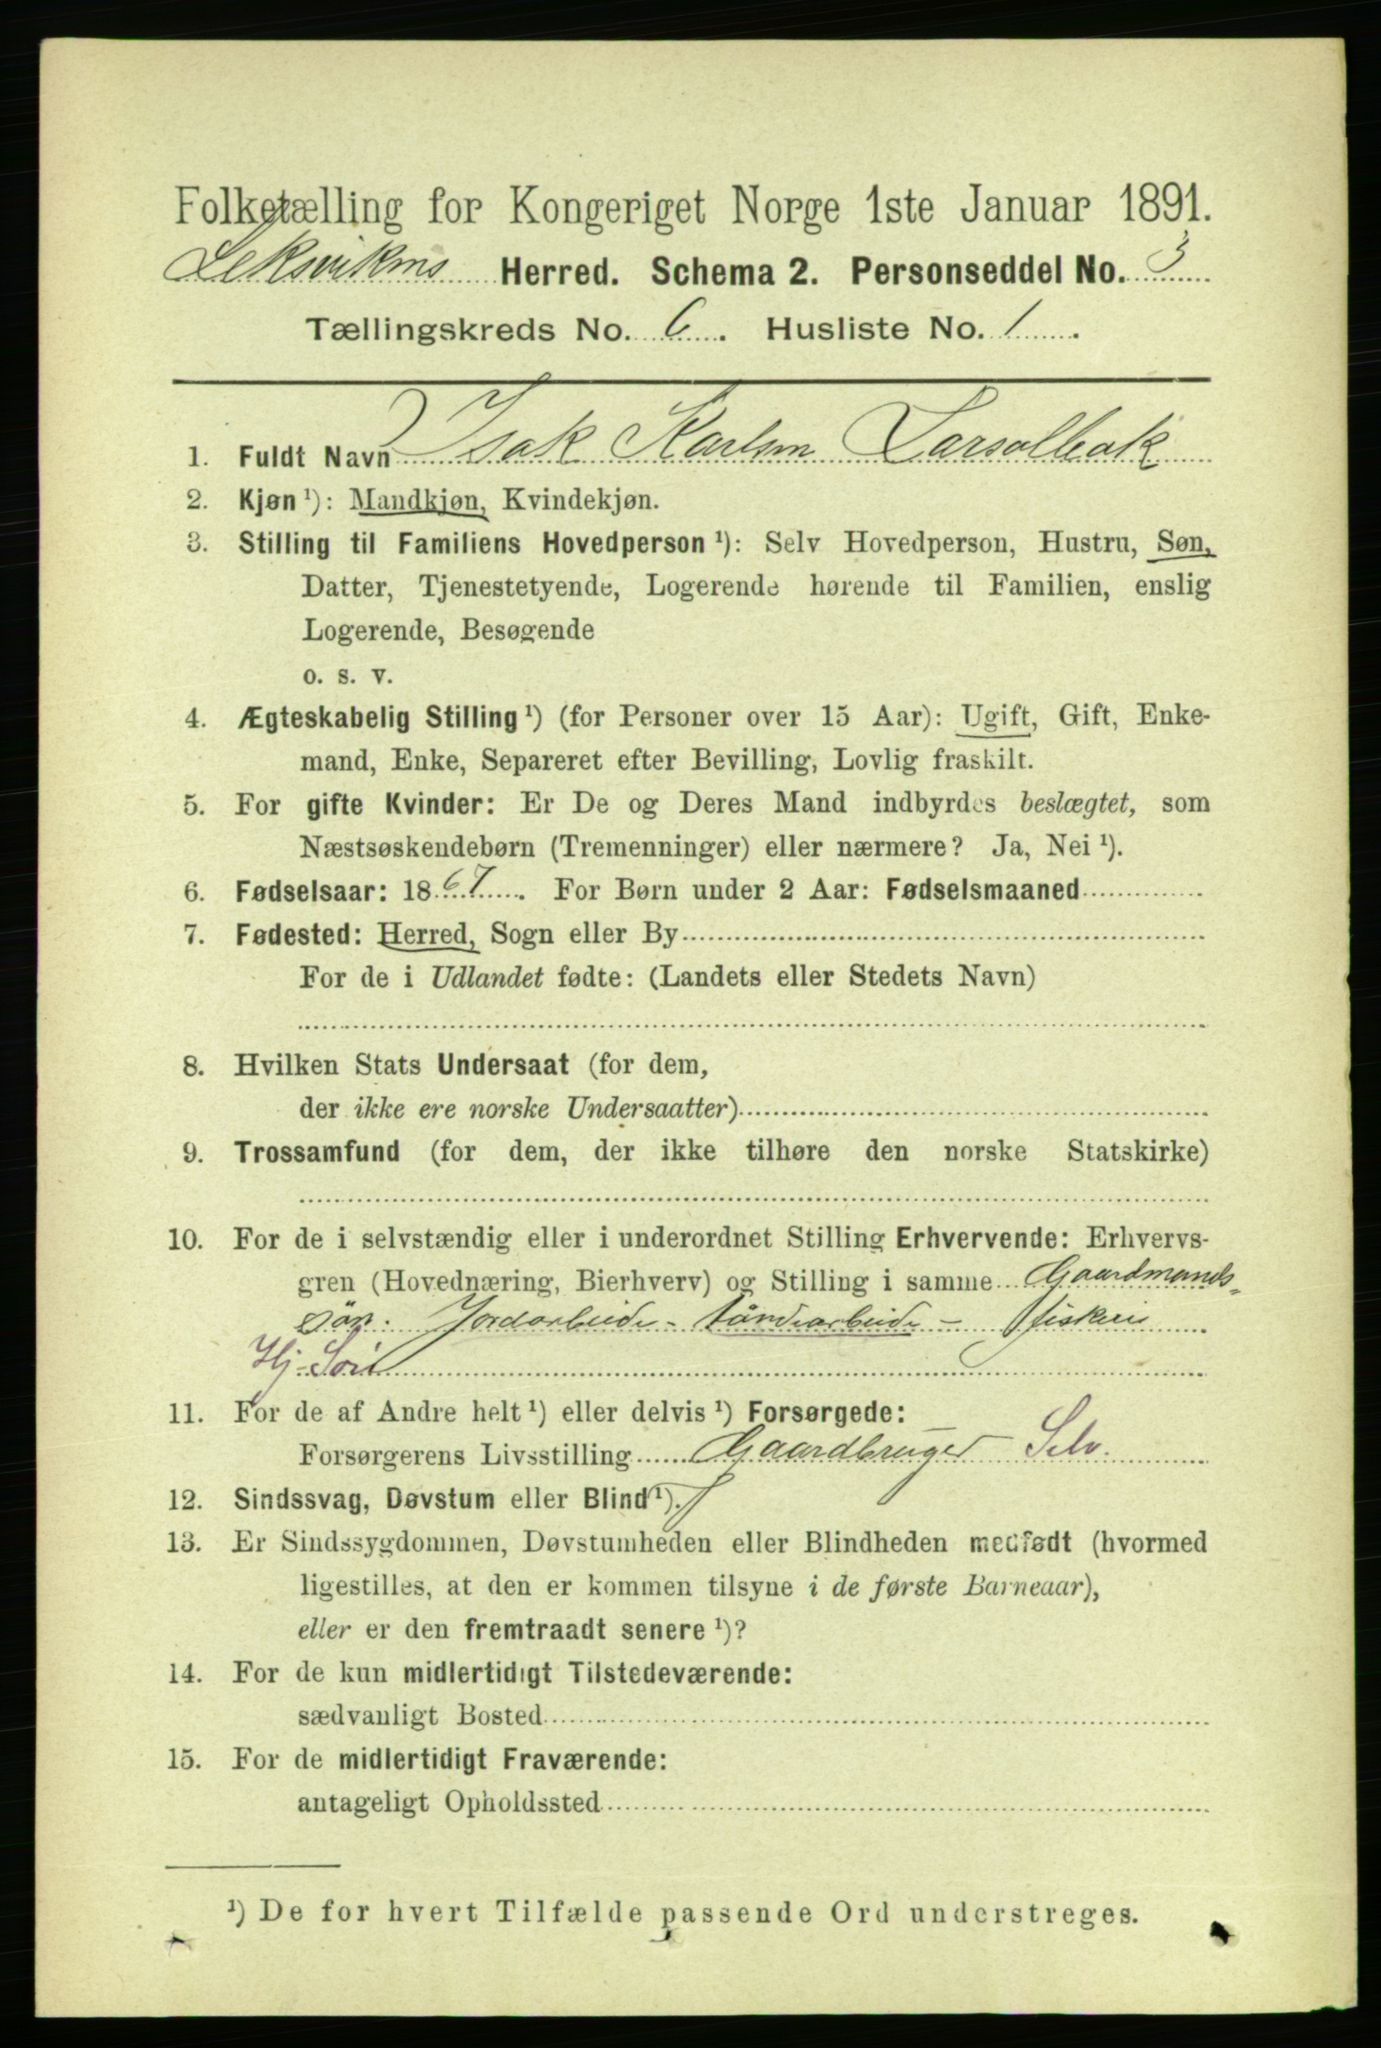 Folketælling for Kongeriget Norge 1ste Januar 1891.
Leksvikens Herred. Schema 2. Personseddel No. 3
Tællingskreds No. 6. Husliste No. 1.
1. Fuldt Navn Isak Karlsen
2. Kjøn ¹): Mandkjøn, Kvindekjøn.
3. Stilling til Familiens Hovedperson ¹): Selv Hovedperson, Hustru, Søn,
Datter, Tjenestetyende, Logerende hørende til Familien, enslig
Logerende, Besøgende
o. s. v.
4. Ægteskabelig Stilling ¹) (for Personer over 15 Aar): Ugift, Gift, Enke-
mand, Enke, Separeret efter Bevilling, Lovlig fraskilt.
5. For gifte Kvinder: Er De og Deres Mand indbyrdes beslægtet, som
Næstsøskendebørn (Tremenninger) eller nærmere? Ja, Nei ¹).
6. Fødselsaar: 1867. For Børn under 2 Aar: Fødselsmaaned
7. Fødested: Herred, Sogn eller By
For de i Udlandet fødte: (Landets eller Stedets Navn)
8. Hvilken Stats Undersaat (for dem,
der ikke ere norske Undersaatter)
9. Trossamfund (for dem, der ikke tilhøre den norske Statskirke)
10. For de i selvstændig eller i underordnet Stilling Erhvervende: Erhvervs-
gren (Hovednæring, Bierhverv) og Stilling i samme Gaardmands-
søn. Jordarbeide - tøndearbeide - fiskeri
Hj. Søn
11. For de af Andre helt ¹) eller delvis ¹) Forsørgede:
Forsørgerens Livsstilling Gaardbruger Selv.
12. Sindssvag, Døvstum eller Blind ¹).
13. Er Sindssygdommen, Døvstumheden eller Blindheden medfødt (hvormed
ligestilles, at den er kommen tilsyne i de første Barneaar),
eller er den fremtraadt senere ¹)?
14. For de kun midlertidigt Tilstedeværende:
sædvanligt Bosted
15. For de midlertidigt Fraværende:
antageligt Opholdssted
¹) De for hvert Tilfælde passende Ord understreges.